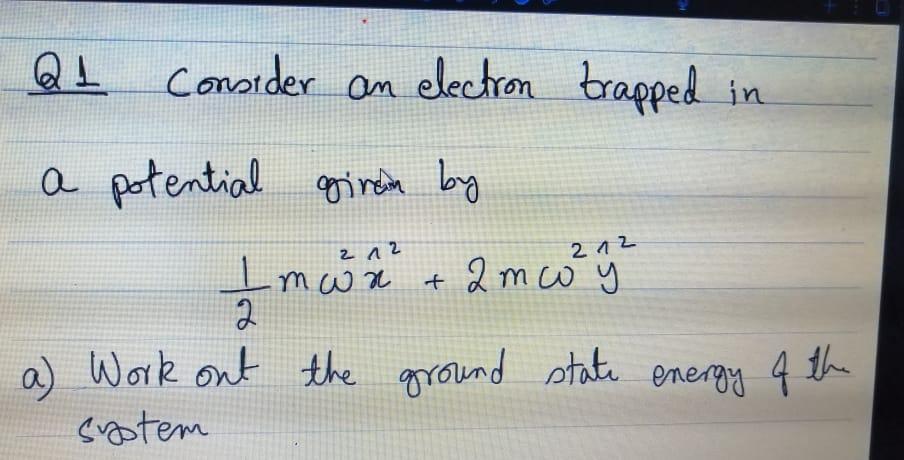 Q1 Consider an electron trapped in
a potential given by
1/2 mω²x̂² + 2mω²ŷ²
a) Work out the ground state energy of th
system